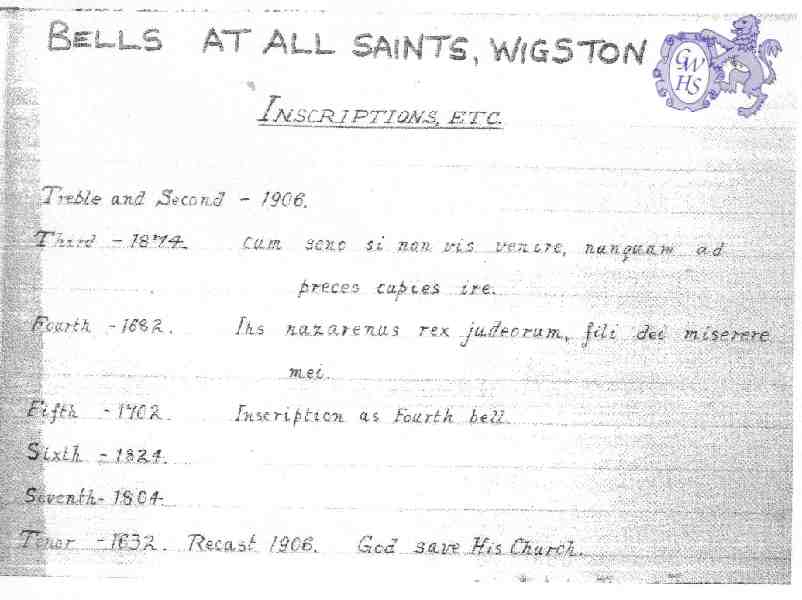 BELLS AT ALL SAINTS, WIGSTON
GW
HS
INSCRIPTIONS, ETC.
Treble and Second - 1906.
Third - 1874. cum sono si non vis venire, nunquam ad
preces cupies ire.
Fourth - 1682. Ihs nazarenus rex judeorum, fili dei miserere
mei.
Fifth - 1702. Inscription as Fourth bell.
Sixth - 1824.
Seventh - 1804.
Tenor - 1632. Recast 1906. God save His Church.